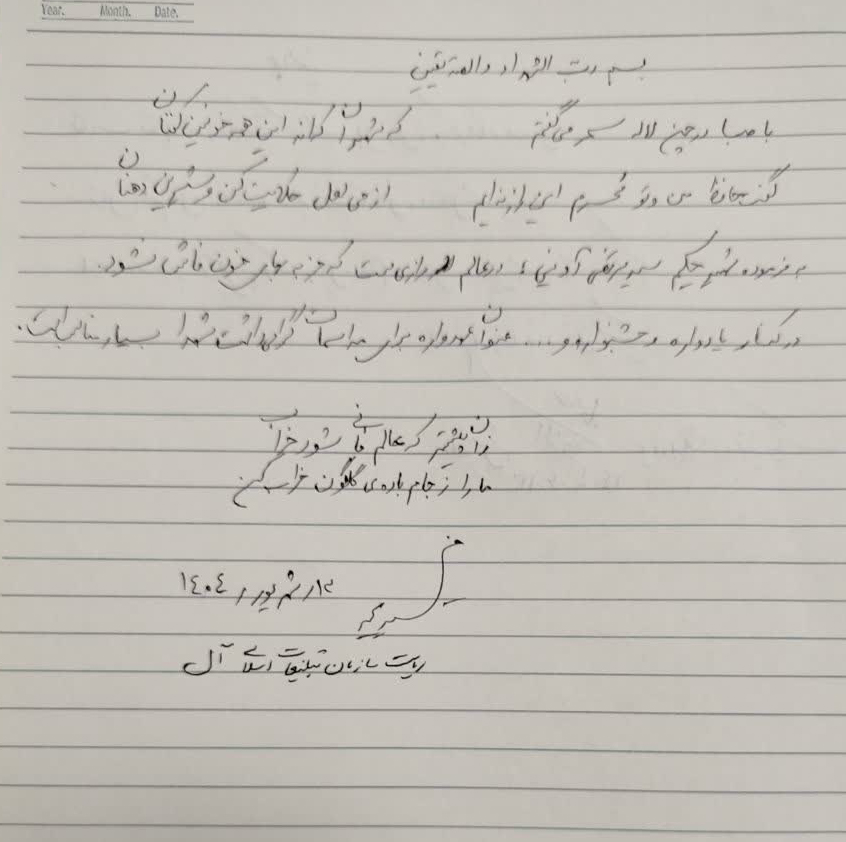 Year. Month. Date.
بسم رب الشهداء والصدیقین
با صبا در چمن لاله سحر می‌گفتم که شهیدان که‌اند این همه خونین کفنان
گفت حافظ من و تو محرم این راز نه‌ایم از می لعل حکایت کن و شیرین دهنان
به فرموده شهید حکیم سید مرتضی آوینی؛ در عالم رازی هست که جز به بهای خون فاش نشود.
در کنار یادواره و جشنواره و... عنوان برای مراسمات گرامیداشت شهدا بسیار است.
زان پیشتر که عالم فانی شود خراب
ما را ز جام باده‌ی گلگون خراب کن
۱۳ شهریور ۱۴۰۴
ریاست سازمان تبلیغات اسلامی